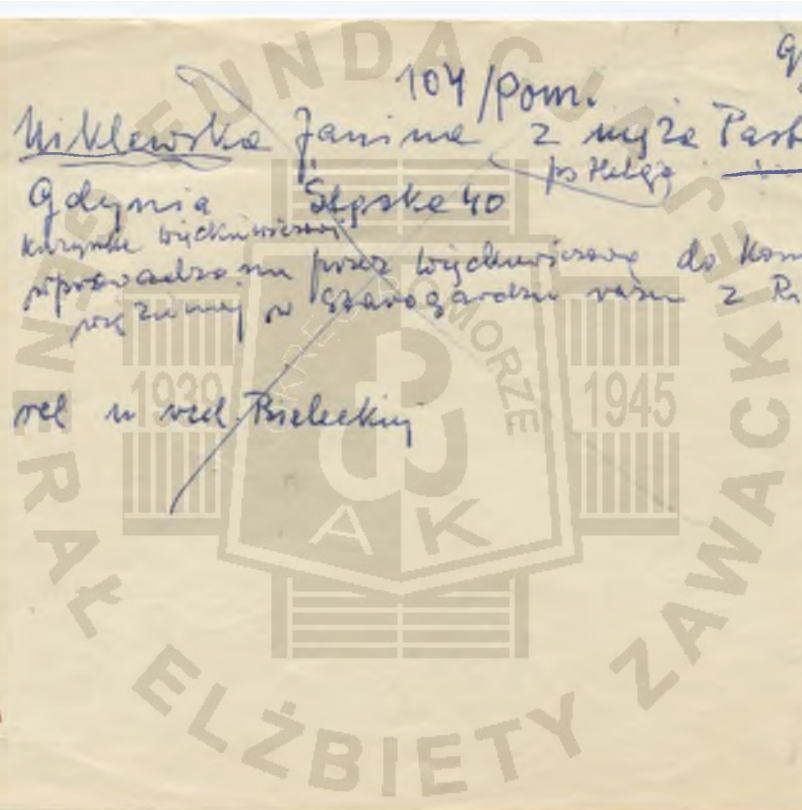 104/Pom.
Niklewska Janina z męża Past
ps Helga
Gdynia Śląska 40
kuzynka Więckowiczowej
wprowadzona przez Więckowiczową do Kon
więziennej w Starogardzie razem z
rel u red. Bieleckiej
FUNDACJA
GENERAŁ ELŻBIETY ZAWACKIEJ
OKRĘG POMORZE
1939 1945
AK